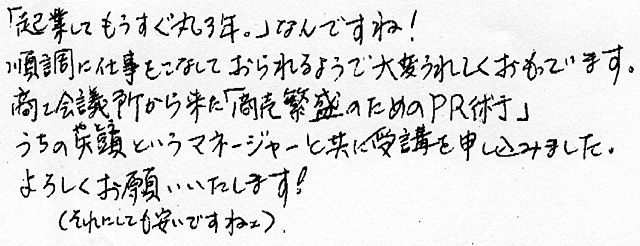 「起業してもうすぐ丸3年。」なんですね!
順調に仕事をこなしておられるようで大変うれしくおもっています。
商工会議所から来た「商売繁盛のためのPR術」
うちの英頭というマネージャーと共に受講を申し込みました。
よろしくお願いいたします!
(それにしても安いですねェ).